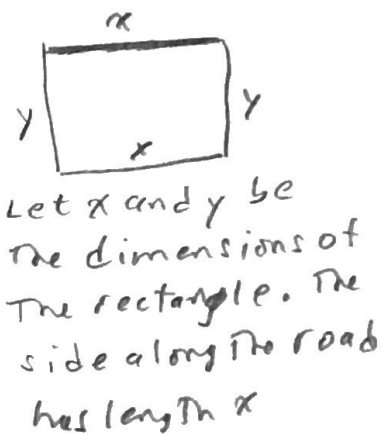 x
y y
x
Let x and y be
The dimensions of
The rectangle. The
side along The road
has length x